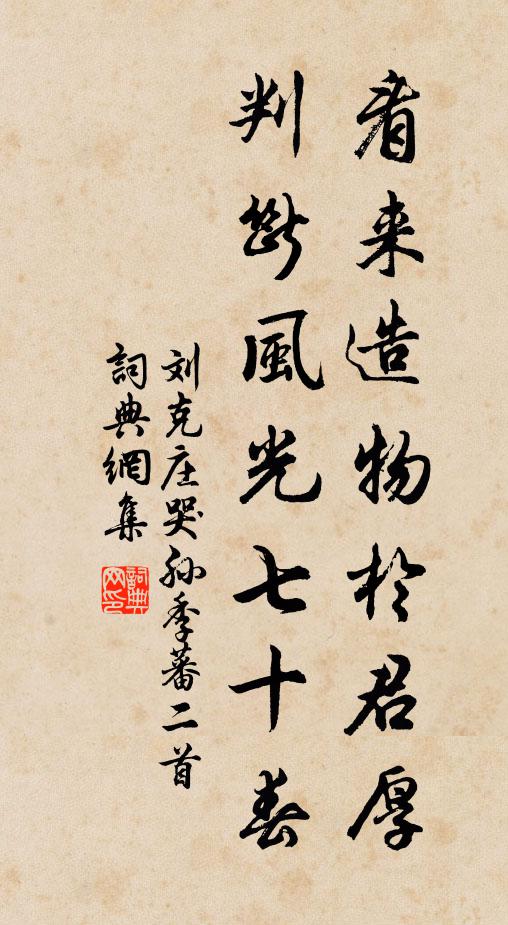 看来造物於君厚
判断風光七十春
刘克庄哭孙季蕃二首
詞典網集
詞典網印